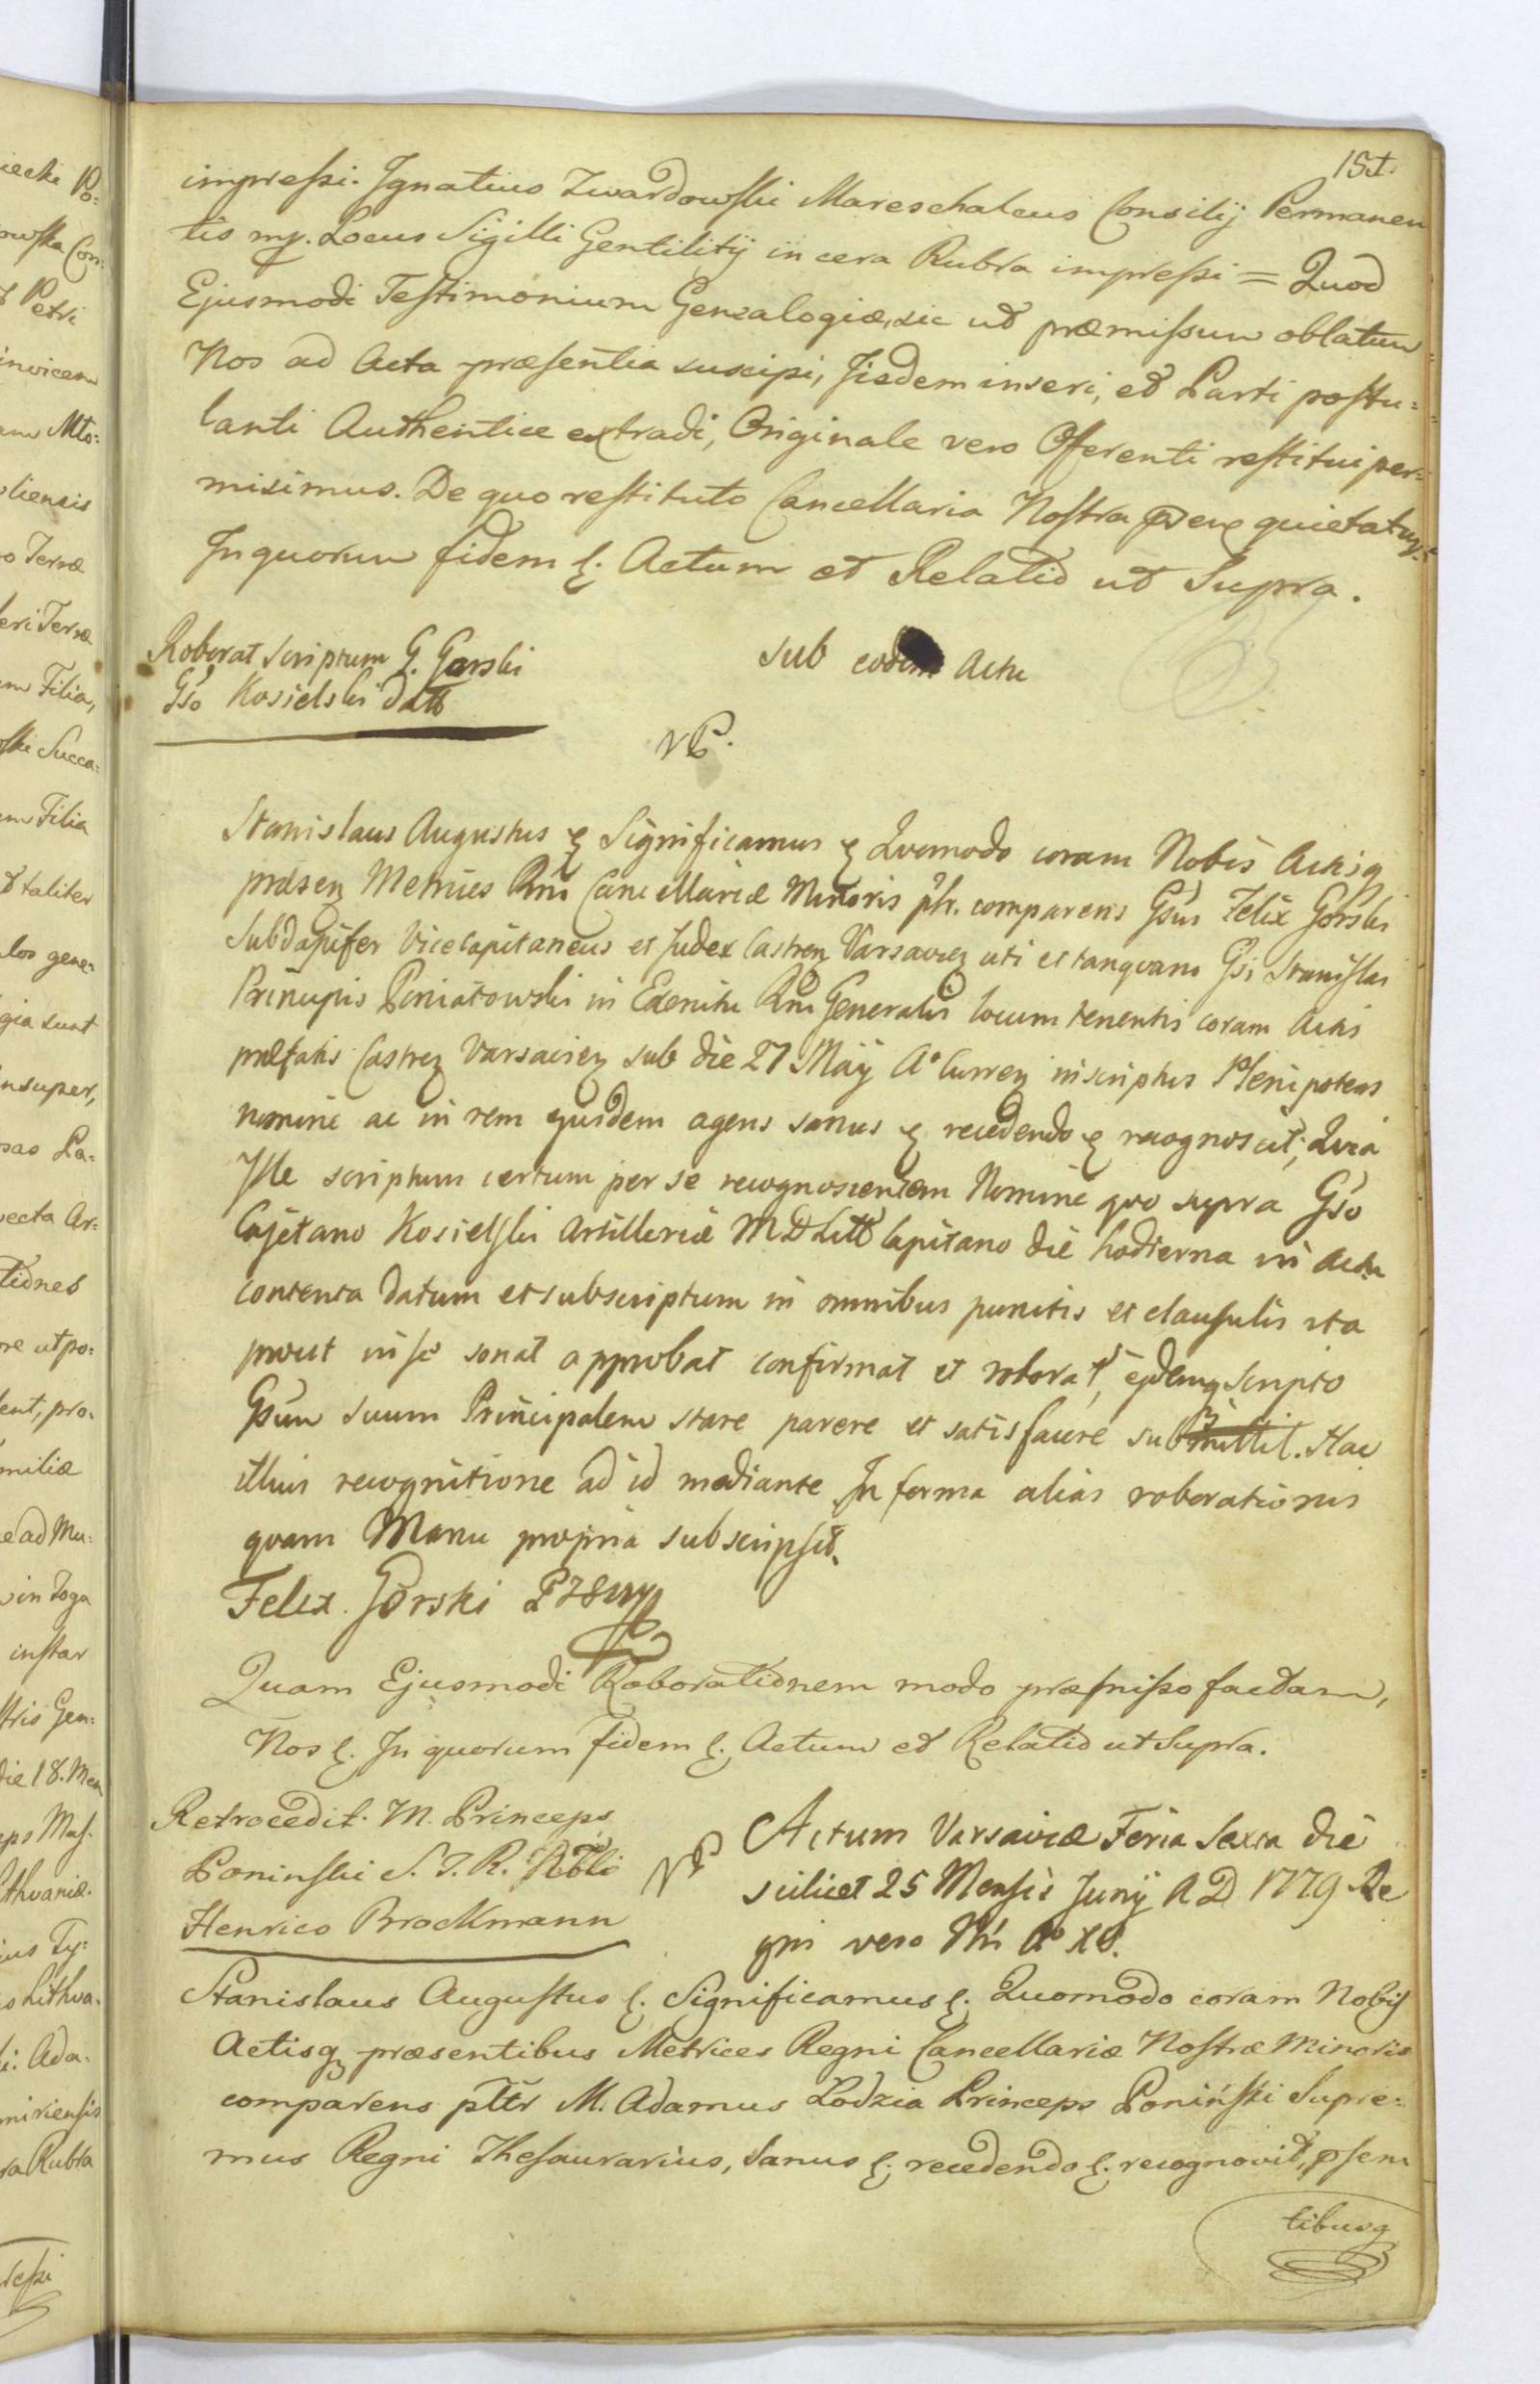 151.
impressi. Ignatius Zwardowski Mareschalcus Consilij Permanen
tis mp. Locus Sigilli Gentilitij in cera Rubra impressi = Quod
Ejusmodi Testimonium Genealogiæ, sic ut præmissum oblatum
Nos ad Acta præsentia suscipi, Jisdem inseri, et Parti postu=
lanti Authentice extradi, Originale vero Offerenti restitui per=
misimus. De quo restituto Cancellaria Nostra quietatur.
In quorum fidem &. Actum et Relatio ut Supra.
Roborat scriptum G. Gorski
Gso Kosielski datt
sub eodem Actu
NP.
Stanislaus Augustus & Significamus & Quomodo coram Nobis Actisq
præsen Metrices Rni Cancellariæ Minoris plr. comparens Gsus Felix Gorski
Subdapifer Vicecapitaneus et Judex Castren Varsavien uti et tanquam Gsi Stanislai
Principis Poniatowski in Exercitu Rni Generalis locum tenentis coram Actis
præfatis Castren Varsavien sub die 27 Maÿ Aº Curren inscriptus Plenipotens
nomine ac in rem ejusdem agens sanus & recedendo & recognoscit, Quia
Ille scriptum certum per se recognoscentem Nomine quo supra Gso
Cajetano Kosielski Artilleriæ M D Litt Capitano die hodierna in Actu
contenta datum et subscriptum in omnibus punctis et clausulis ita
prout in se sonat approbat confirmat et roborat, ejdemq scripto
Gsum suum Principalem stare parere et satisfacere submittit. Hac
illius recognitione ad id mediante In forma alias roborationis
quam Manu propria subscripsit.
Felix Gorski PZWmp
Quam Ejusmodi Roborationem modo præmisso factam,
Nos &. In quorum fidem &. Actum et Relatio ut Supra.
Retrocedit. M. Princeps
Poninski S. T. R. Nobli
Henrico Brockmann
NP
Actum Varsaviæ Feria Sexta die
scilicet 25 Mensis Junÿ A D 1779 Re
gni vero Nri Aº XV.
Stanislaus Augustus &. Significamus &. Quomodo coram Nobis
Actisq præsentibus Metrices Regni Cancellariæ Nostræ Minoris
comparens pltr M. Adamus Lodzia Princeps Poniński Supre=
mus Regni Thesaurarius, Sanus &. recedendo &. recognovit, psen
tibusq